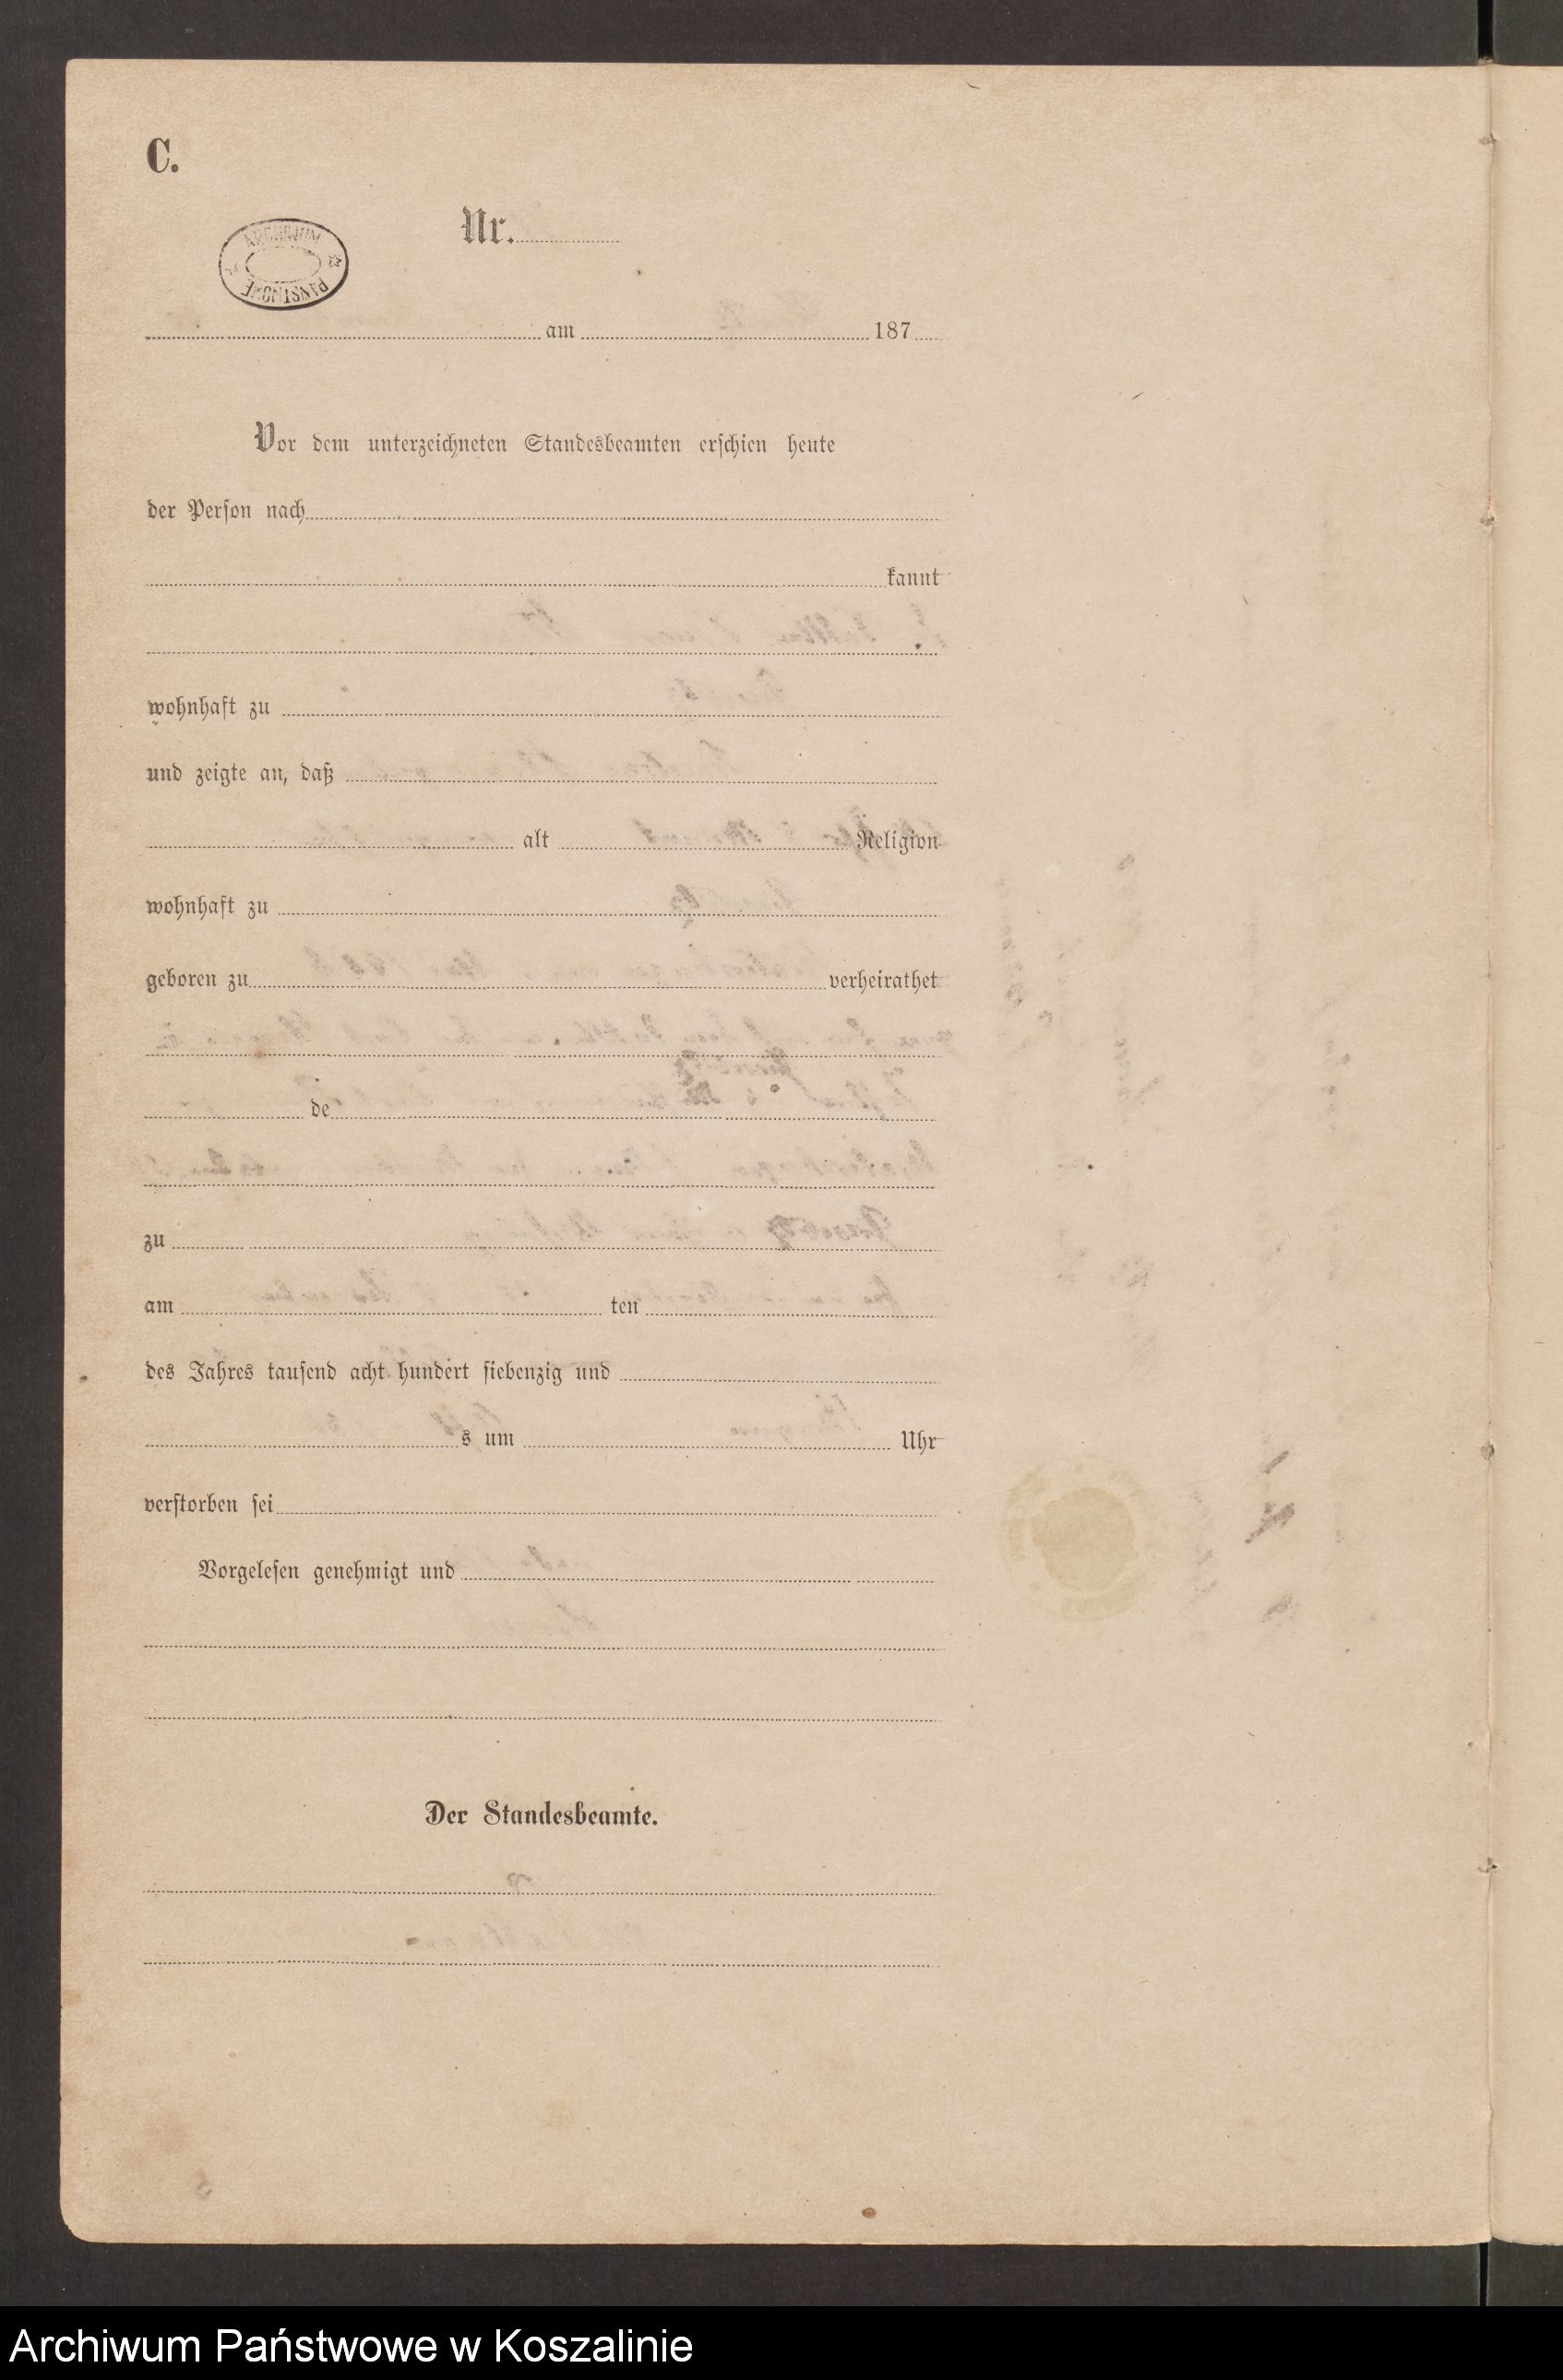 C.
Nr.
ARCHIWUM
PAŃSTWOWE
am 187
Vor dem unterzeichneten Standesbeamten erſchien heute
der Perſon nach
kannt
wohnhaft zu
und zeigte an, daß
alt Religion
wohnhaft zu
geboren zu verheirathet
de
zu
am ten
des Jahres tauſend acht hundert ſiebenzig und
s um Uhr
verſtorben ſei
Vorgeleſen genehmigt und
Der Standesbeamte.
Archiwum Państwowe w Koszalinie